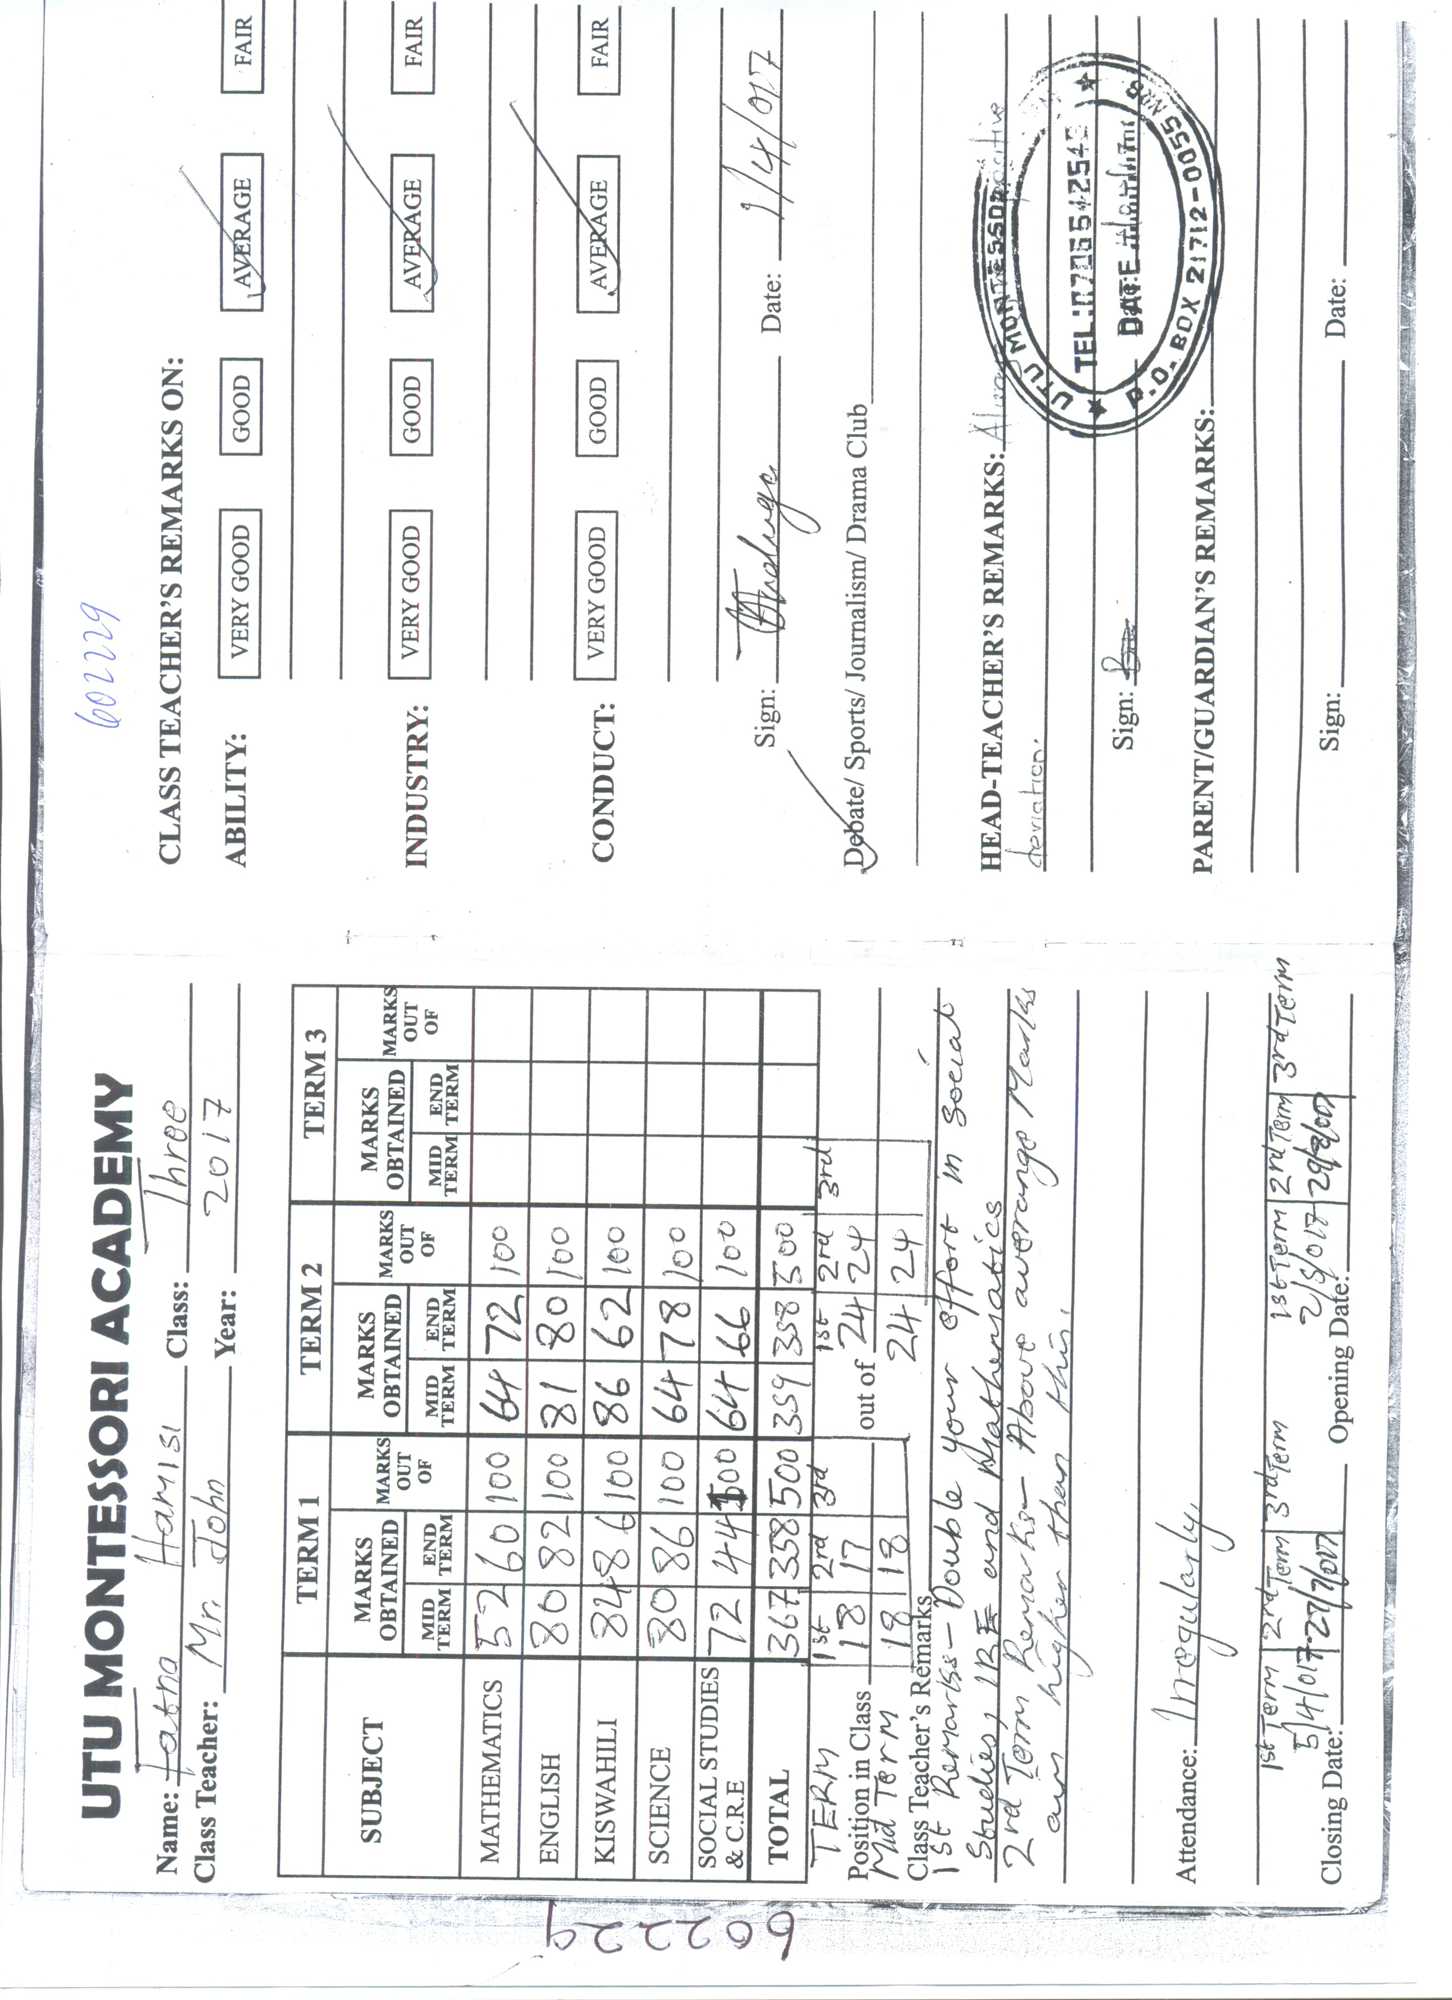 UTU MONTESSORI ACADEMY
Name: Fatna Hamisi Class: Three
Class Teacher: Mr. John Year: 2017
SUBJECT TERM 1 TERM 2 TERM 3
MARKS OBTAINED MARKS OUT OF MARKS OBTAINED MARKS OUT OF MARKS OBTAINED MARKS OUT OF
MID TERM END TERM MID TERM END TERM MID TERM END TERM
MATHEMATICS 52 60 100 64 72 100
ENGLISH 80 82 100 81 80 100
KISWAHILI 84 86 100 86 62 100
SCIENCE 80 86 100 64 78 100
SOCIAL STUDIES & C.R.E 72 44 100 64 66 100
TOTAL 367 358 500 359 358 500
TERM 1st 2rd 3rd 1st 2rd 3rd
Position in Class 18 17 out of 24 24
Mid Term 19 18 24 24
Class Teacher's Remarks
1st Remarks - Double your effort in Social
Studies, IRE and Mathematics
2rd Term Remarks - Above averange Marks
aim higher than this.
Attendance: Iregularly,
1st Term 2rd Term 3rd Term 1st Term 2rd Term 3rd Term
5/4/017 27/7/017 2/5/017 29/8/017
Closing Date: Opening Date:
602229
602229
CLASS TEACHER'S REMARKS ON:
ABILITY: VERY GOOD GOOD AVERAGE FAIR
INDUSTRY: VERY GOOD GOOD AVERAGE FAIR
CONDUCT: VERY GOOD GOOD AVERAGE FAIR
Sign: Date: 1/4/017
Debate/ Sports/ Journalism/ Drama Club
HEAD-TEACHER'S REMARKS: positive
deviation.
Sign:
UTU MONTESSORI
DATE
P.O. BOX 21712-00505 NRB
PARENT/GUARDIAN'S REMARKS:
Sign: Date: